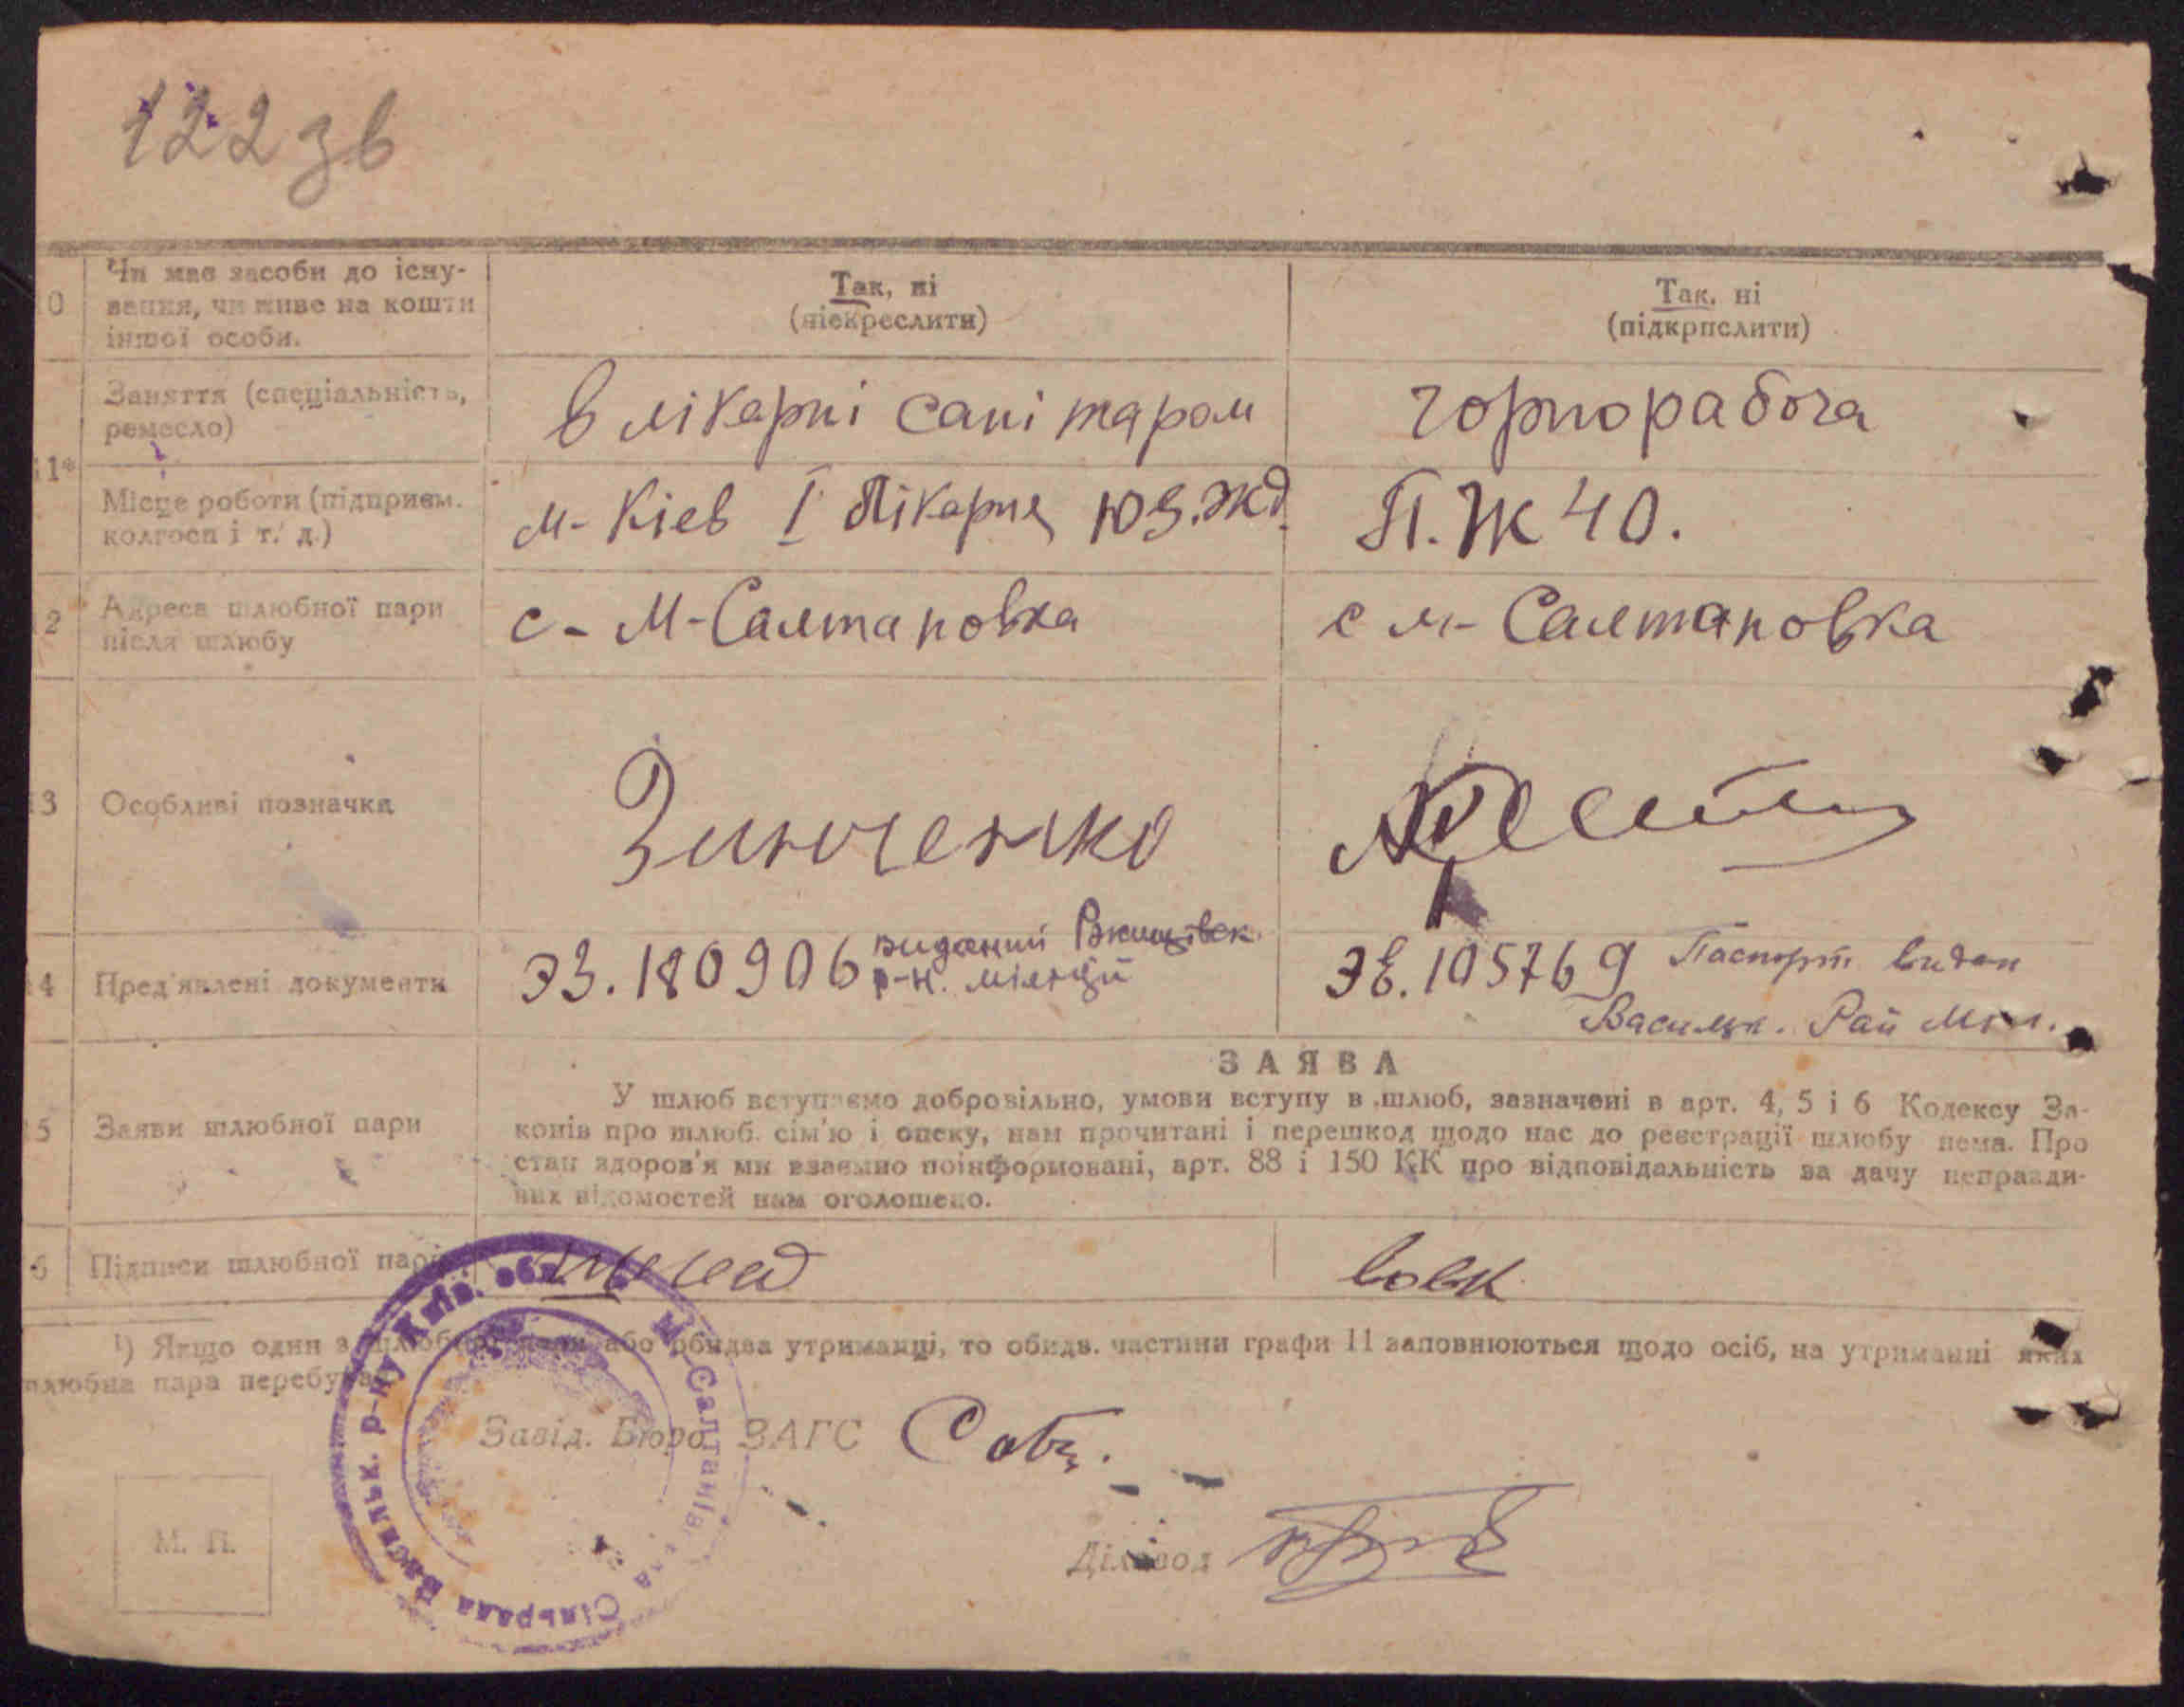 122 зв
10 Чи має засоби до існу-
вання, чи живе на кошти
іншої особи.
Так, ні
(піекреслити)
Так, ні
(підкрпслити)
11* Заняття (спеціальність,
ремесло)
в лікарні санітаром
чорнорабоча
Місце роботи (підприєм.
колгосп і т. д.)
м-Кіев І Лікарня ЮЗ.жд.
П.Ж 40.
12 Адреса шлюбної пари
після шлюбу
с-М-Салтановка
с м-Салтановка
13 Особливі позначка
Зинченко
14 Пред'явлені документи
ЭЗ.180906 виданий Ржищівск.
р-н. міліції
ЭЕ.105769 Паспорт видан
Васильк. Рай Міл.
ЗАЯВА
15 Заяви шлюбної пари
У шлюб вступаємо добровільно, умови вступу в шлюб, зазначені в арт. 4, 5 і 6 Кодексу За-
конів про шлюб. сім'ю і опеку, нам прочитані і перешкод щодо нас до реєстрації шлюбу нема. Про
стан здоров'я ми взаємно поінформовані, арт. 88 і 150 КК про відповідальність за дачу неправди-
вих відомостей нам оголошено.
16 Підписи шлюбної пари
вовк
¹) Якщо один з шлюбної пари або обидва утриманці, то обидв. частини графи 11 заповнюються щодо осіб, на утриманні яких
шлюбна пара перебуває
Завід. Бюро ЗАГС
Діловод
М. П.
М-Салтанів Сільрада Васильк. р-ну Київ. обл.